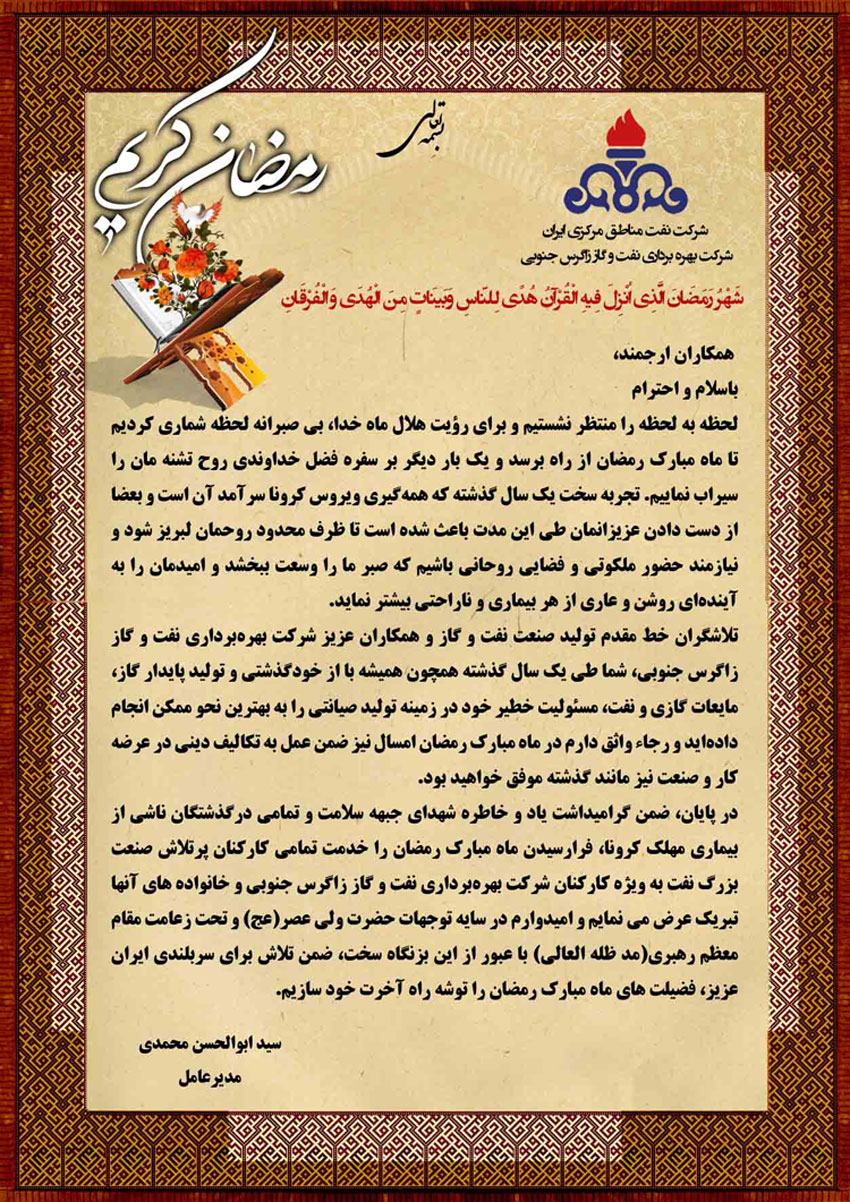 بسمه تعالی
رمضان کریم
شرکت نفت مناطق مرکزی ایران
شرکت بهره برداری نفت و گاز زاگرس جنوبی
شَهْرُ رَمَضَانَ الَّذِی اُنْزِلَ فِیهِ الْقُرْآنُ هُدًی لِلنّاسِ وَبَیِنَاتٍ مِنَ الْهُدَی وَالْفُرْقَانِ
همکاران ارجمند،
باسلام و احترام
لحظه به لحظه را منتظر نشستیم و برای رؤیت هلال ماه خدا، بی صبرانه لحظه شماری کردیم
تا ماه مبارک رمضان از راه برسد و یک بار دیگر بر سفره فضل خداوندی روح تشنه مان را
سیراب نماییم. تجربه سخت یک سال گذشته که همه‌گیری ویروس کرونا سرآمد آن است و بعضا
از دست دادن عزیزانمان طی این مدت باعث شده است تا ظرف محدود روحمان لبریز شود و
نیازمند حضور ملکوتی و فضایی روحانی باشیم که صبر ما را وسعت ببخشد و امیدمان را به
آینده‌ای روشن و عاری از هر بیماری و ناراحتی بیشتر نماید.
تلاشگران خط مقدم تولید صنعت نفت و گاز و همکاران عزیز شرکت بهره‌برداری نفت و گاز
زاگرس جنوبی، شما طی یک سال گذشته همچون همیشه با از خودگذشتی و تولید پایدار گاز،
مایعات گازی و نفت، مسئولیت خطیر خود در زمینه تولید صیانتی را به بهترین نحو ممکن انجام
داده‌اید و رجاء واثق دارم در ماه مبارک رمضان امسال نیز ضمن عمل به تکالیف دینی در عرضه
کار و صنعت نیز مانند گذشته موفق خواهید بود.
در پایان، ضمن گرامیداشت یاد و خاطره شهدای جبهه سلامت و تمامی درگذشتگان ناشی از
بیماری مهلک کرونا، فرارسیدن ماه مبارک رمضان را خدمت تمامی کارکنان پرتلاش صنعت
بزرگ نفت به ویژه کارکنان شرکت بهره‌برداری نفت و گاز زاگرس جنوبی و خانواده های آنها
تبریک عرض می نمایم و امیدوارم در سایه توجهات حضرت ولی عصر(عج) و تحت زعامت مقام
معظم رهبری(مد ظله العالی) با عبور از این بزنگاه سخت، ضمن تلاش برای سربلندی ایران
عزیز، فضیلت های ماه مبارک رمضان را توشه راه آخرت خود سازیم.
سید ابوالحسن محمدی
مدیرعامل